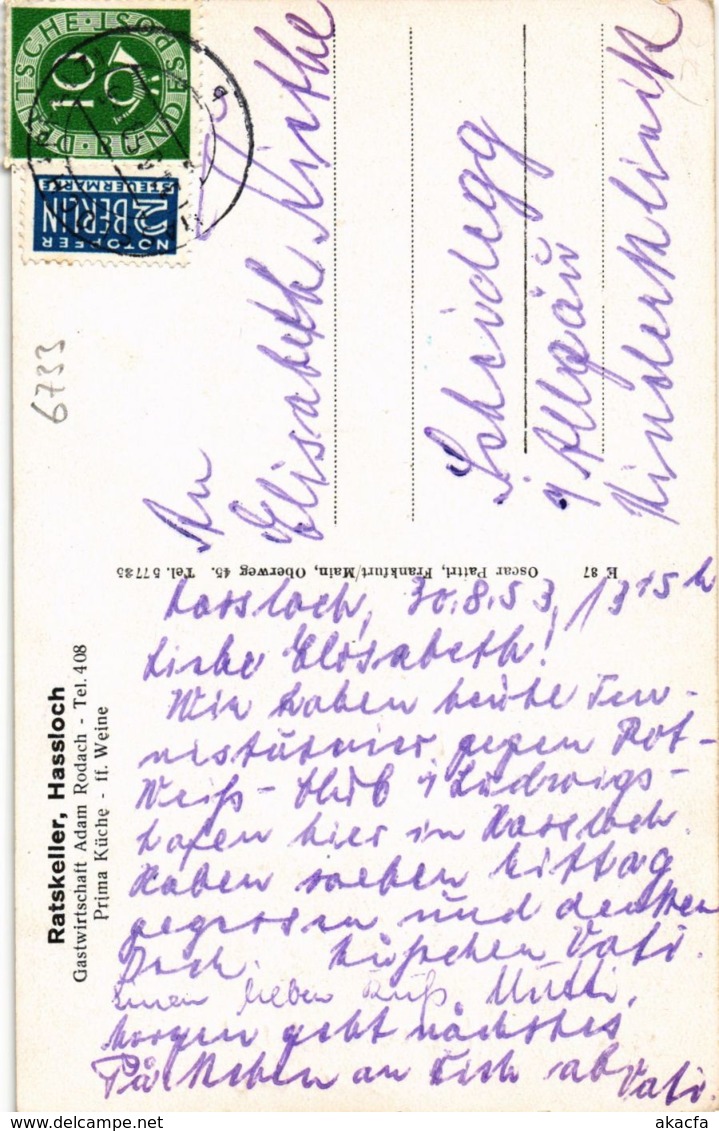 DEUTSCHE · BUNDESPOST
10
NOTOPFER
2 BERLIN
STEUERMARKE
6733
An
Elisabeth
Scheidegg
i/Allgäu
Kinderklinik
E 87
Oscar Paitrl, Frankfurt/Main, Oberweg 45. Tel. 57735
Ratskeller, Hassloch
Gastwirtschaft Adam Rodach - Tel. 408
Prima Küche - ff. Weine
Hassloch, 30.8.53, 13 15 h
Liebe Elisabeth!
Wir haben heute Ten-
nisturnier gegen Rot-
Weiß-Club i/Ludwigs-
hafen hier in Hassloch.
Haben soeben Mittag
gegessen und denken
Dich. Küßchen Vati.
Einen lieben Kuß, Mutti,
Morgen geht nächstes
Päckchen an Dich ab
Vati.
akacfa